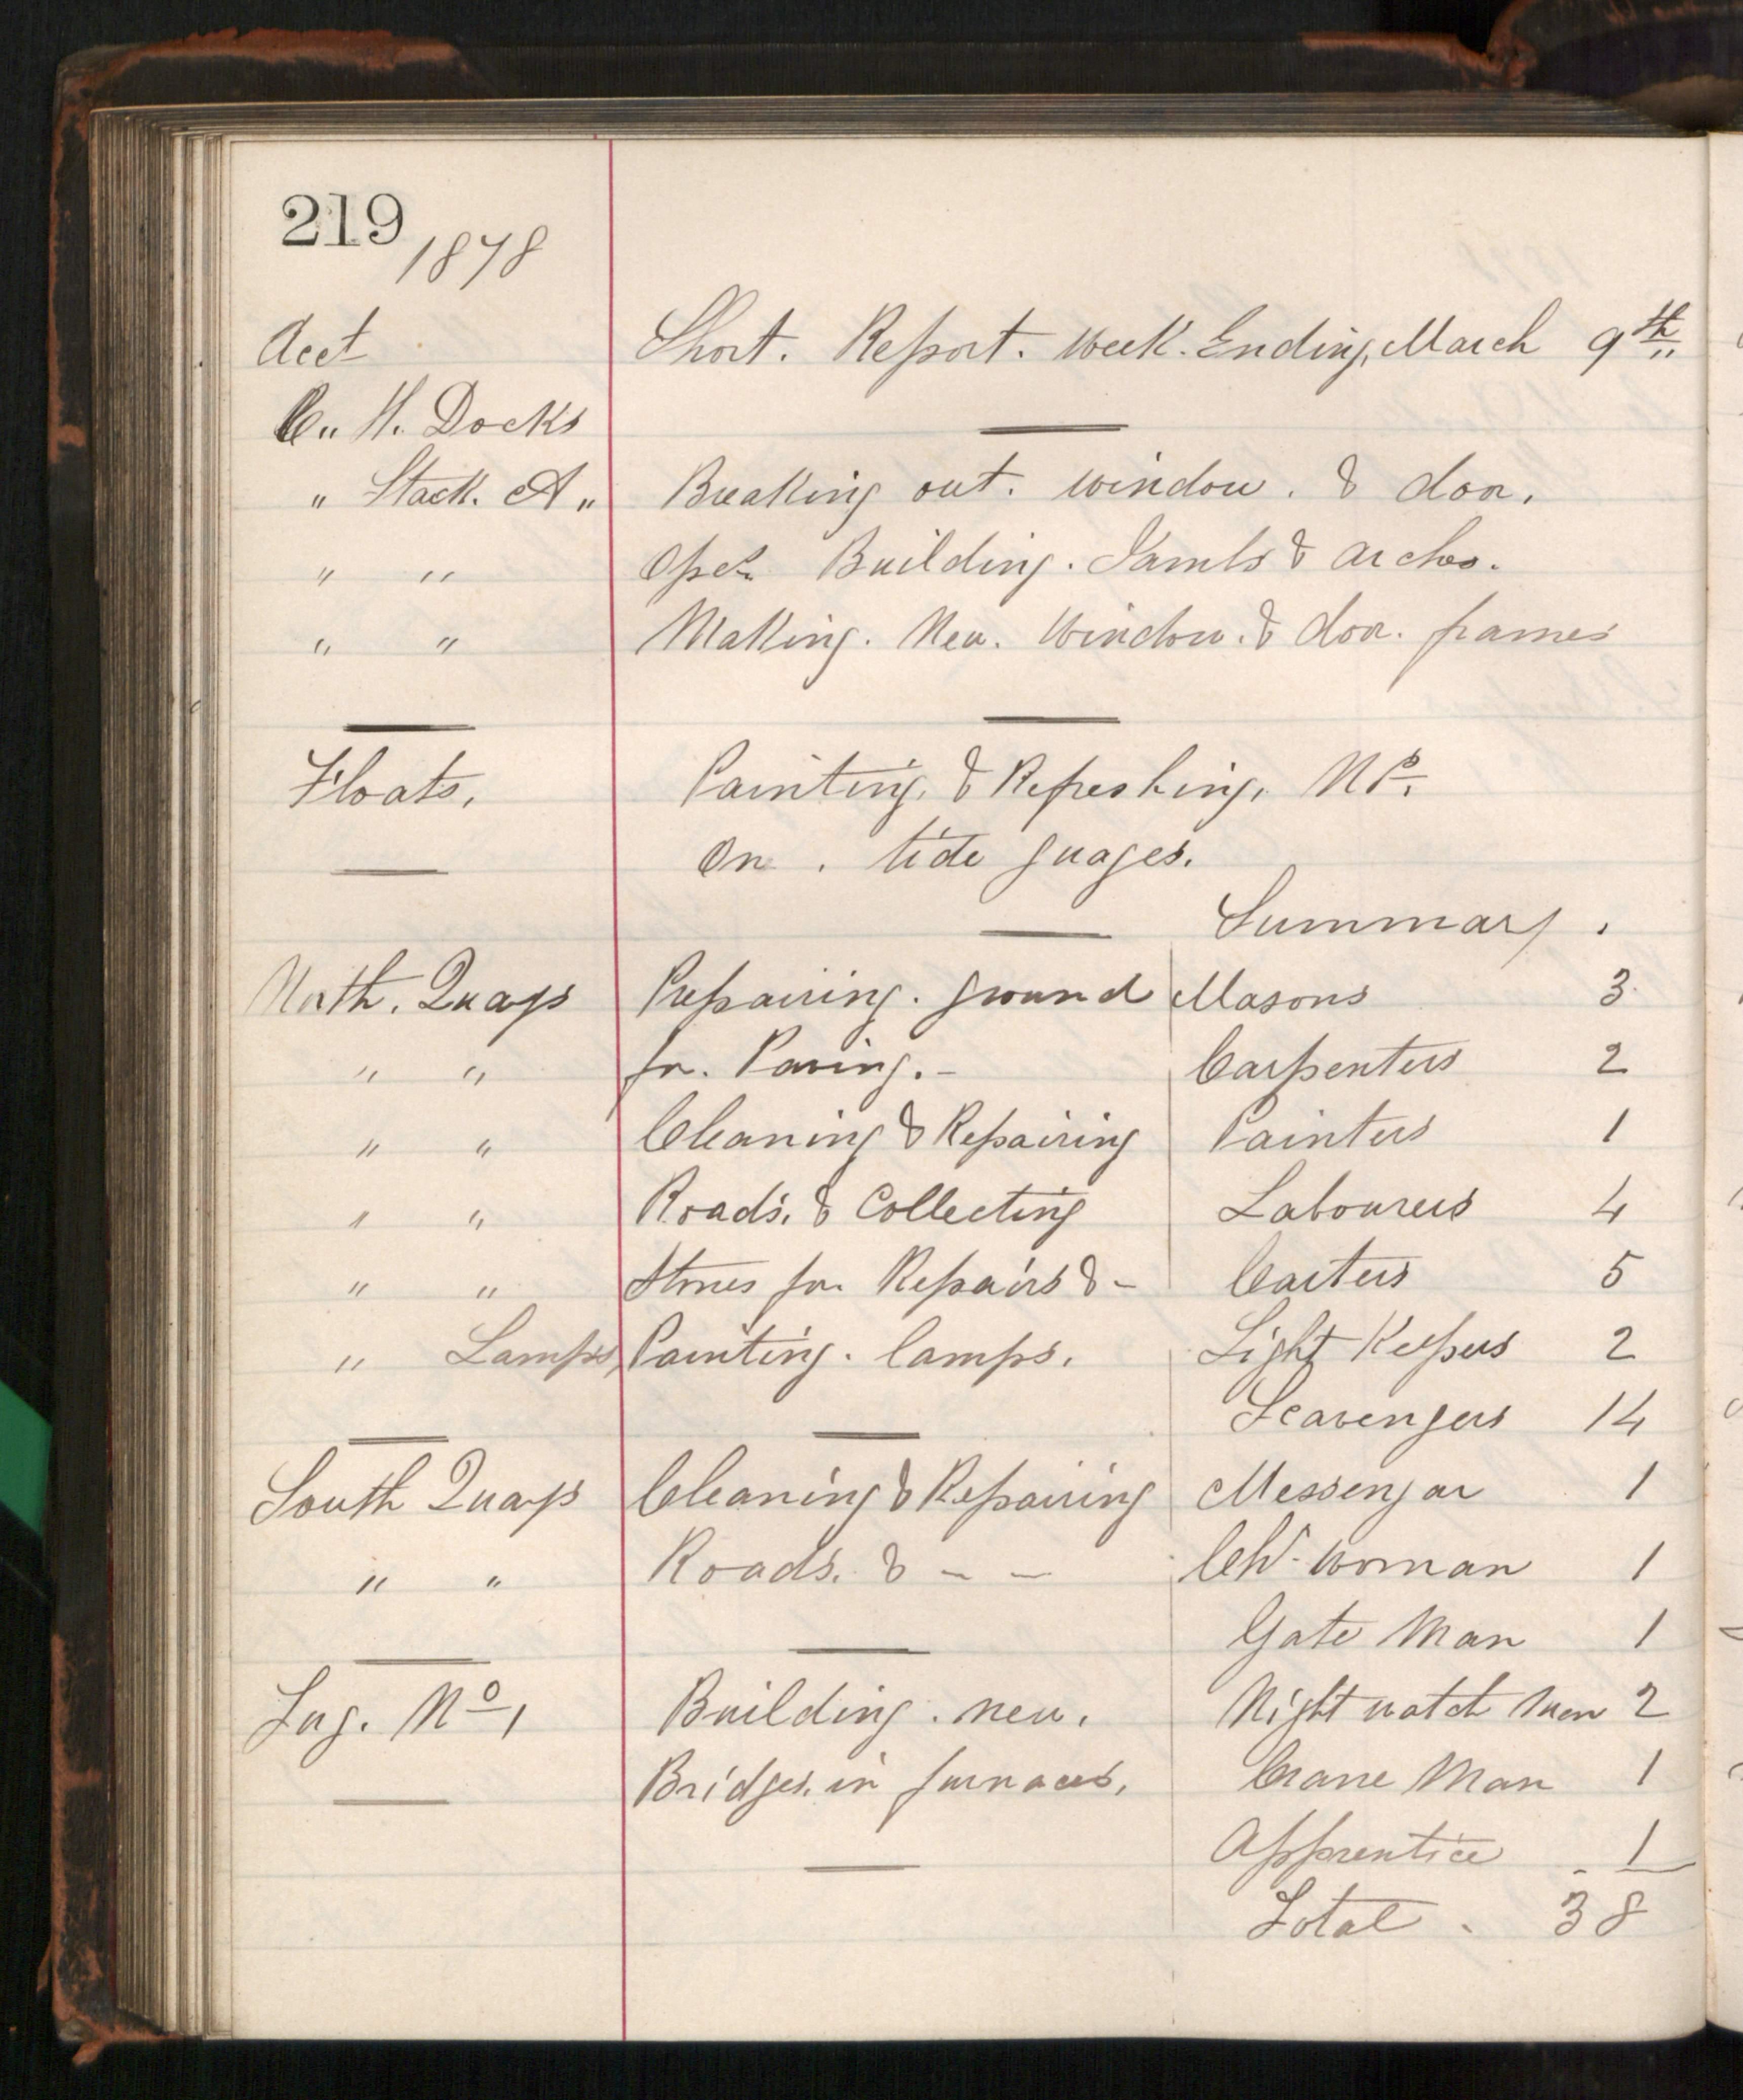 219
1878
Acct Short. Report. Week. Ending, March 9th
C.. H. Docks
" Stack. A " Breaking out. window. & door.
" " Opes Building. Jambs & arches.
" " Making. New. Window. & door. frames
Floats. Painting, & Refreshing, Nos.
On. tide guages.
Summary.
North. Quays Preparing. ground Masons 3
" " for. Paving. - Carpenters 2
" " Cleaning & Repairing Painters 1
" " Roads. & Collecting Labourers 4
" " Stones for Repairs & - Carters 5
" Lamps Painting. lamps. Light Keepers 2
Scavengers 14
South Quays Cleaning & Repairing Messengar 1
" " Roads. & - - Ch. woman 1
Gate Man 1
Lug. No 1 Building. new. Night watch Men 2
Bridges. in furnaces. Crane Man 1
Apprentice 1
Total. 38